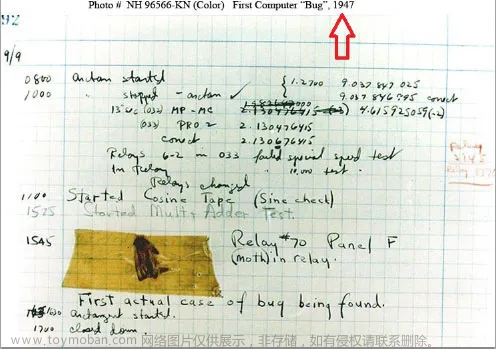 Photo # NH 96566-KN (Color) First Computer “Bug”, 1947
92
9/9
0800 antan started
1000 " stopped - antan ✓
{ 1.2700 9.037 847 025
9.037 846 995 conect
13" uc (032) MP - MC 2.130476415 4.615925059(-2)
(033) PRO 2 2.130476415
conect 2.130676415
Relays 6-2 in 033 failed special speed test
In Relay " 10,000 test .
Relay
2145
Relays changed
1100 Started Cosine Tape (Sine check)
1525 Started Mult + Adder Test.
1545 Relay #70 Panel F
(Moth) in relay.
First actual case of bug being found.
1630 antangent started.
1700 closed down.
www.toymoban.com 网络图片仅供展示，非存储，如有侵权请联系删除。